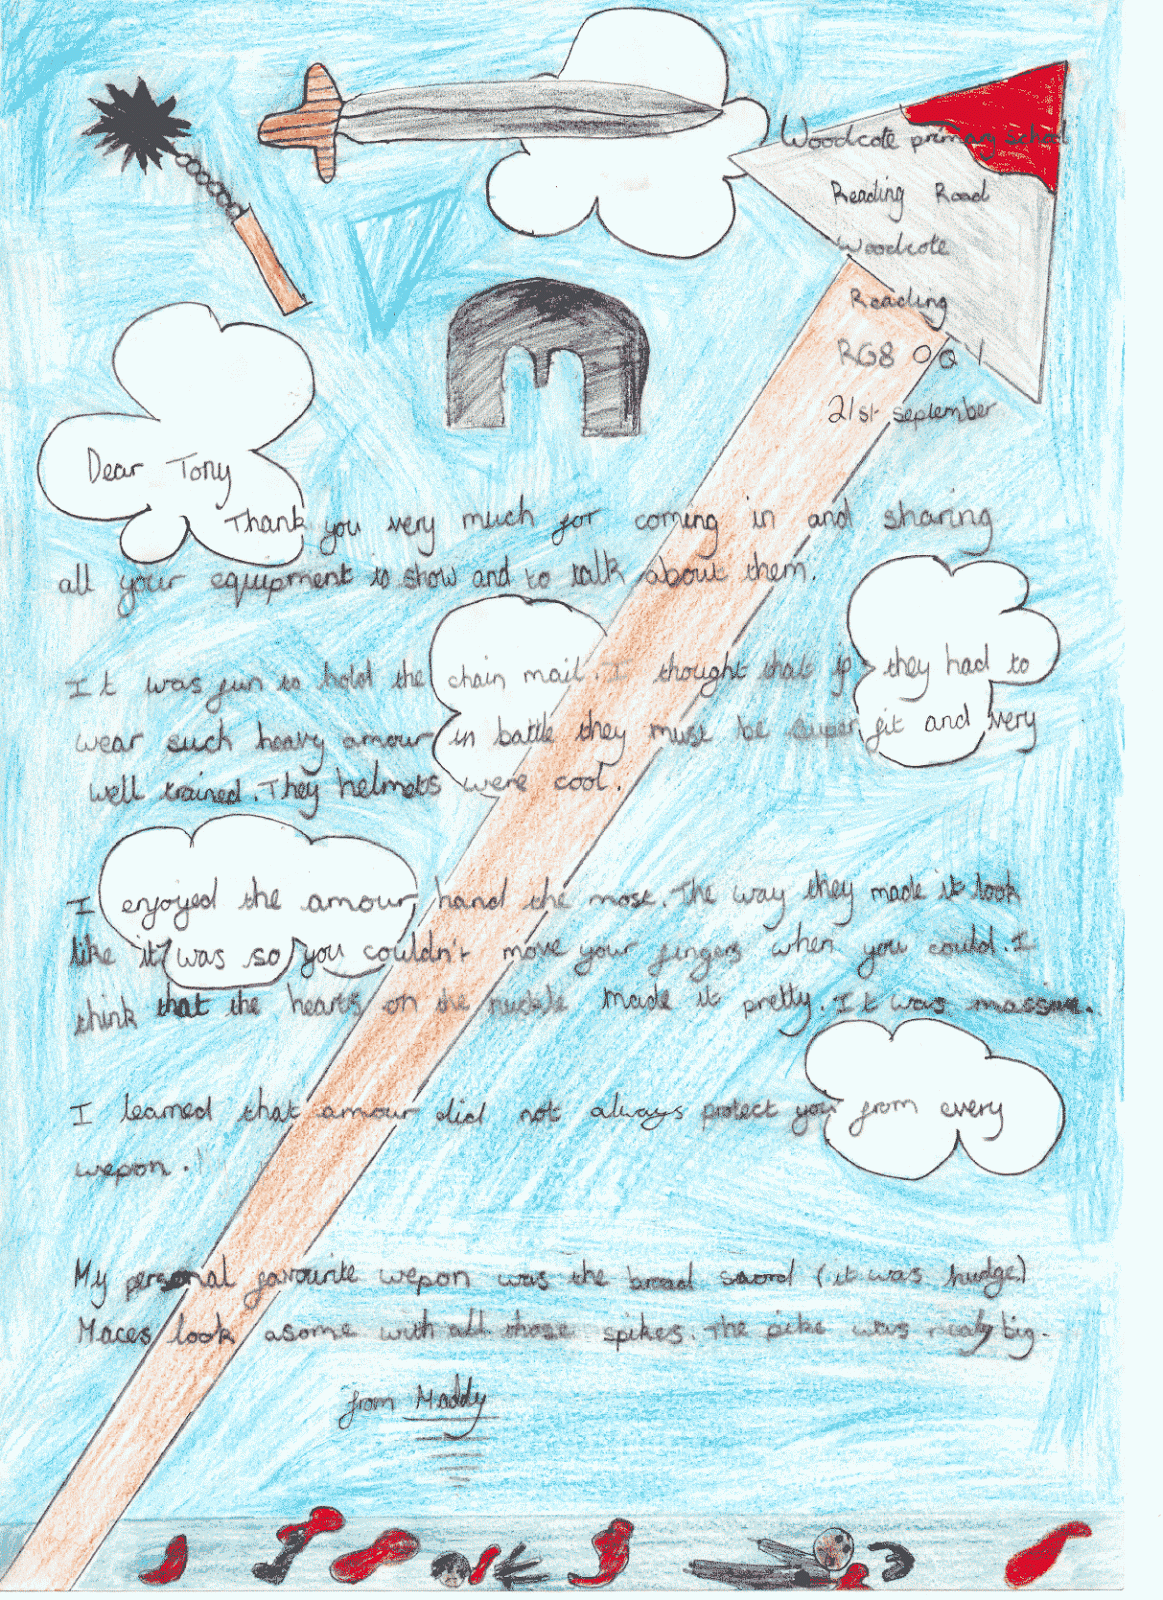 Woodcote primary school
Reading Road
Woodcote
Reading
RG8 0QY
21st september
Dear Tony
Thank you very much for coming in and sharing
all your equipment to show and to talk about them.
It was fun to hold the chain mail. I thought that if they had to
wear such heavy amour in battle they must be super fit and very
well trained. They helmets were cool.
I enjoyed the amour hand the most. The way they made it look
like it was so you couldn't move your fingers when you could. I
think that the hearts on the nuckle made it pretty. It was massive.
I learned that amour did not always protect you from every
wepon.
My personal favourite wepon was the broad sword (it was hudge)
Maces look asome with all those spikes. The pike was realy big.
from Maddy